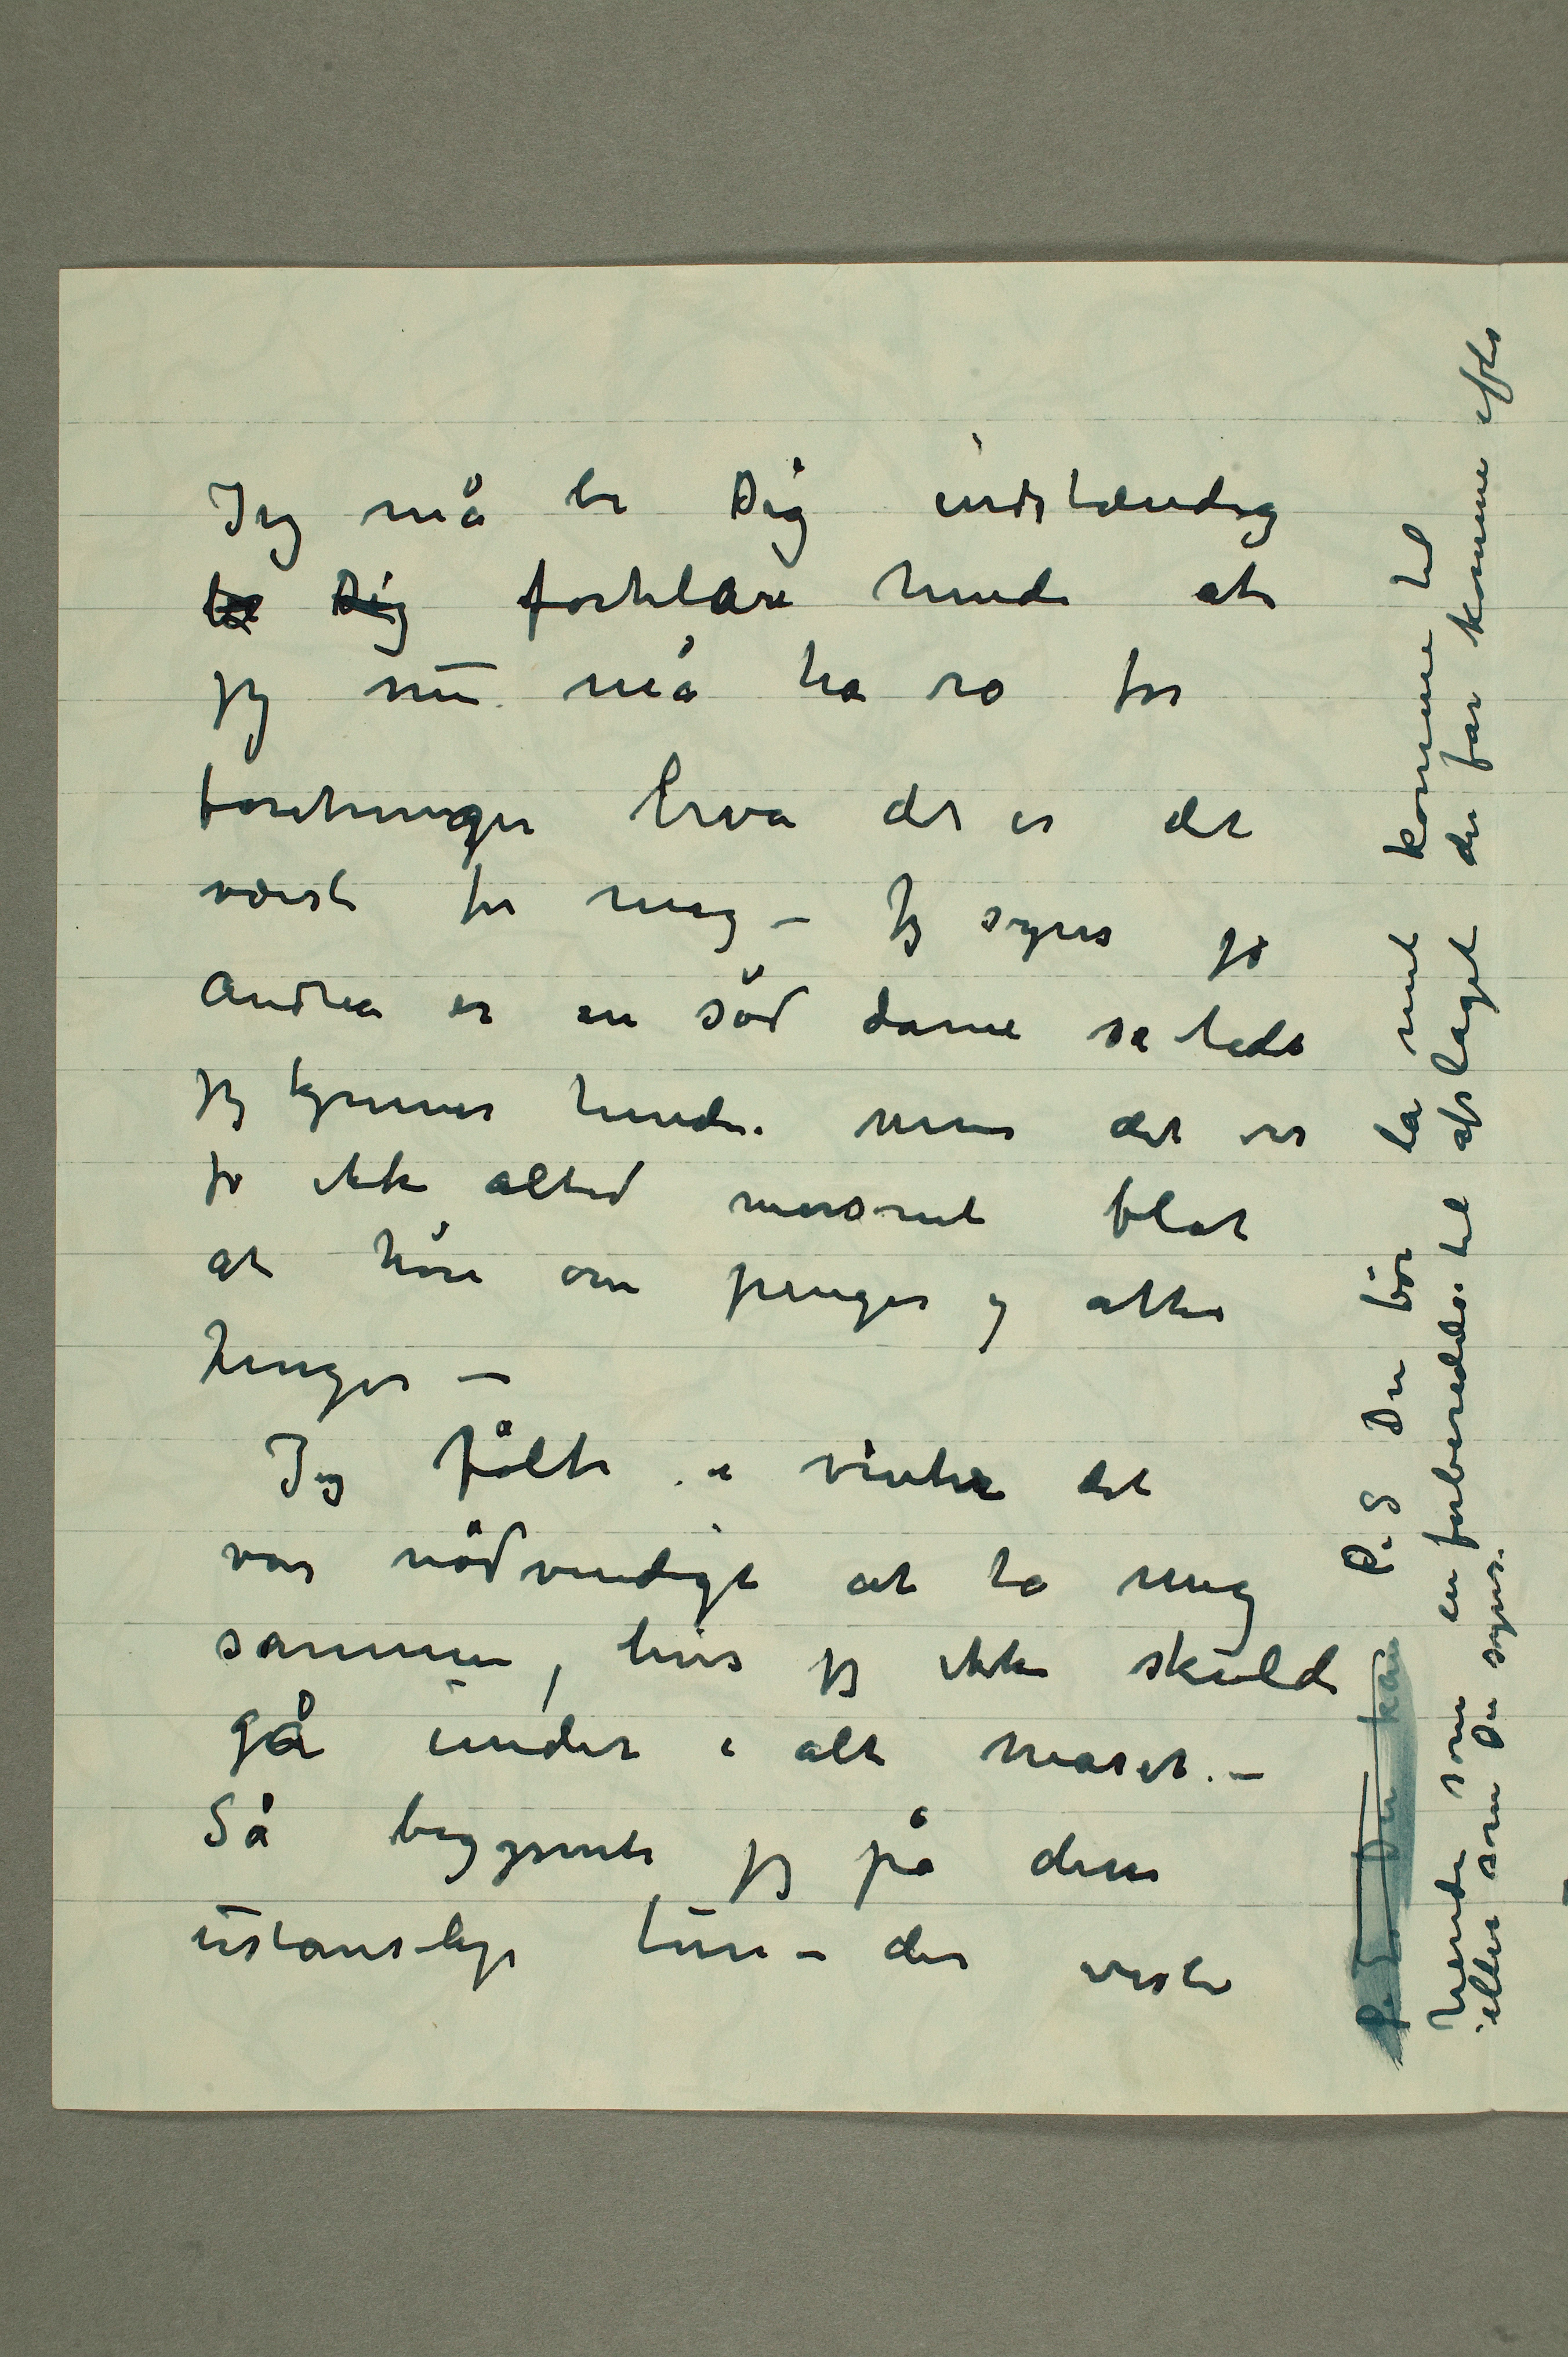 Jeg må be Dig indstændig
be Dig forklare hende at
jeg nu må ha ro for
foretninger Hva der er det
værst for mig – Jeg synes jo
Andrea er en sød dame så lidt
jeg kjenner hende. men det er
jo ikke altid morsomt blot
at høre om penger og atter
penger –
Jeg følte i vinter det
var nødvendigt at ta mig
sammen, hvis jeg ikke skulde
gå under i alt maset. –
Så begynnte jeg på denne
ustanselige ture – der viste
P.S. Du kan P.S Du bør la mit komme til
hende som en forberedelse til afslaget der får komme efter
eller som Du synes.